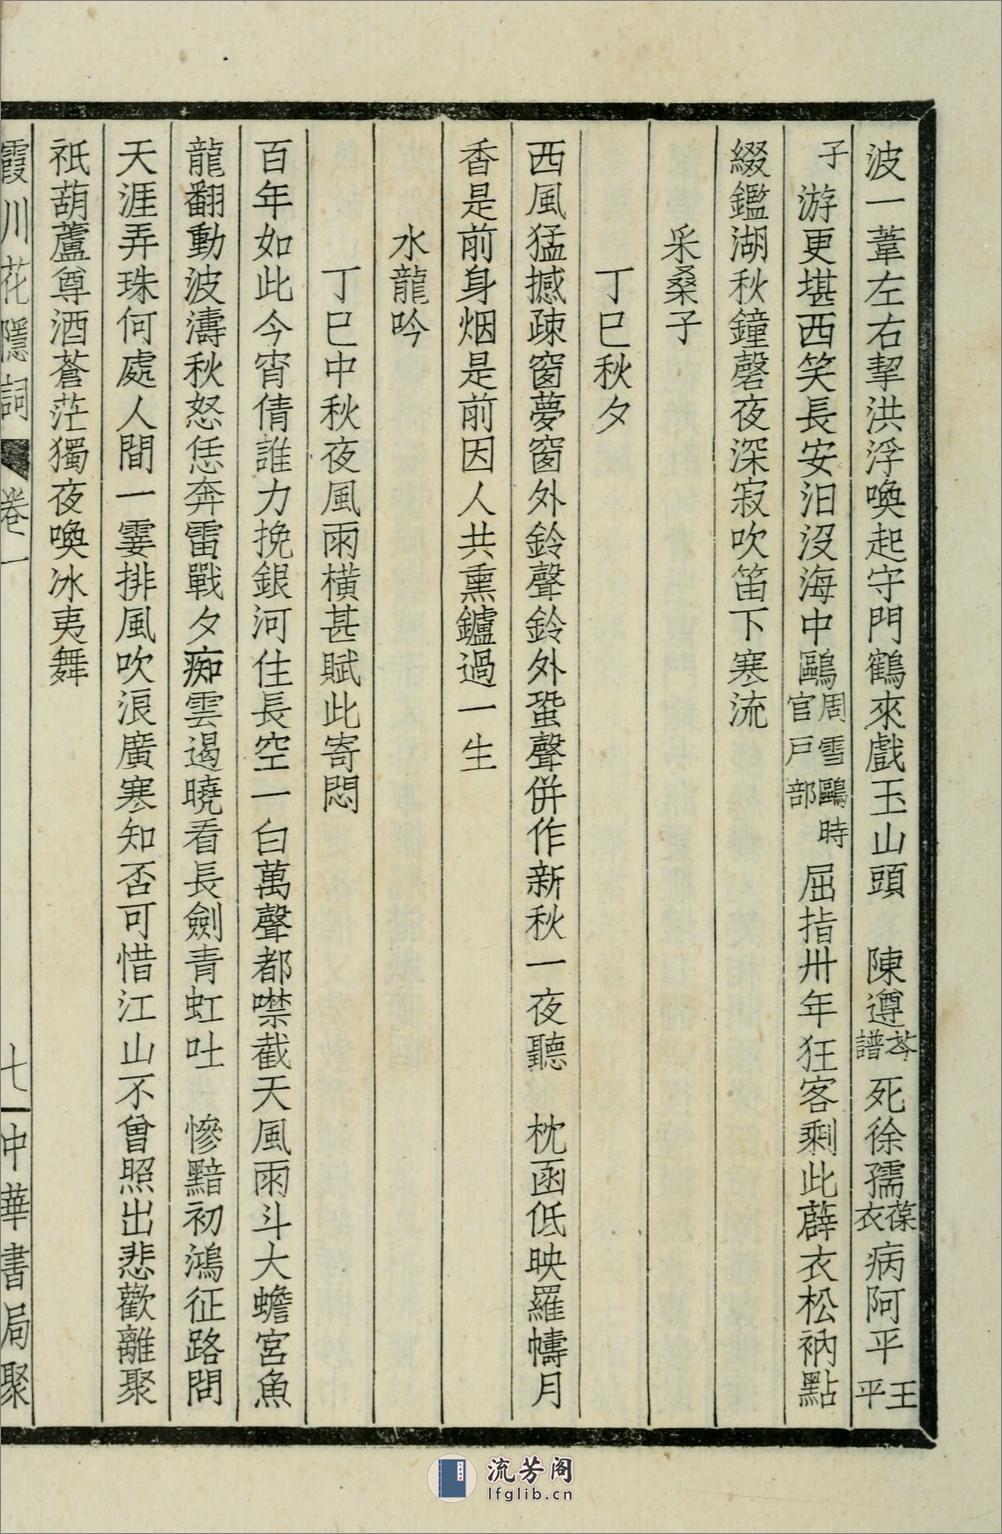 波一葦左右挈洪浮喚起守門鶴來戲玉山頭　陳遵芩譜死徐孺葆衣病阿平王平
子游更堪西笑長安汩沒海中鷗周雪鷗時官戶部屈指卅年狂客剩此薜衣松衲點
綴鑑湖秋鐘磬夜深寂吹笛下寒流
采桑子
丁巳秋夕
西風猛撼疎窗夢窗外鈴聲鈴外蛩聲併作新秋一夜聽　枕函低映羅幬月
香是前身烟是前因人共熏鑪過一生
水龍吟
丁巳中秋夜風雨橫甚賦此寄悶
百年如此今宵倩誰力挽銀河住長空一白萬聲都噤截天風雨斗大蟾宮魚
龍翻動波濤秋怒恁奔雷戰夕痴雲遏曉看長劍青虹吐　慘黯初鴻征路問
天涯弄珠何處人間一霎排風吹浪廣寒知否可惜江山不曾照出悲歡離聚
祇葫蘆尊酒蒼茫獨夜喚冰夷舞
霞川花隱詞　卷一　七　中華書局聚
流芳阁
lfglib.cn